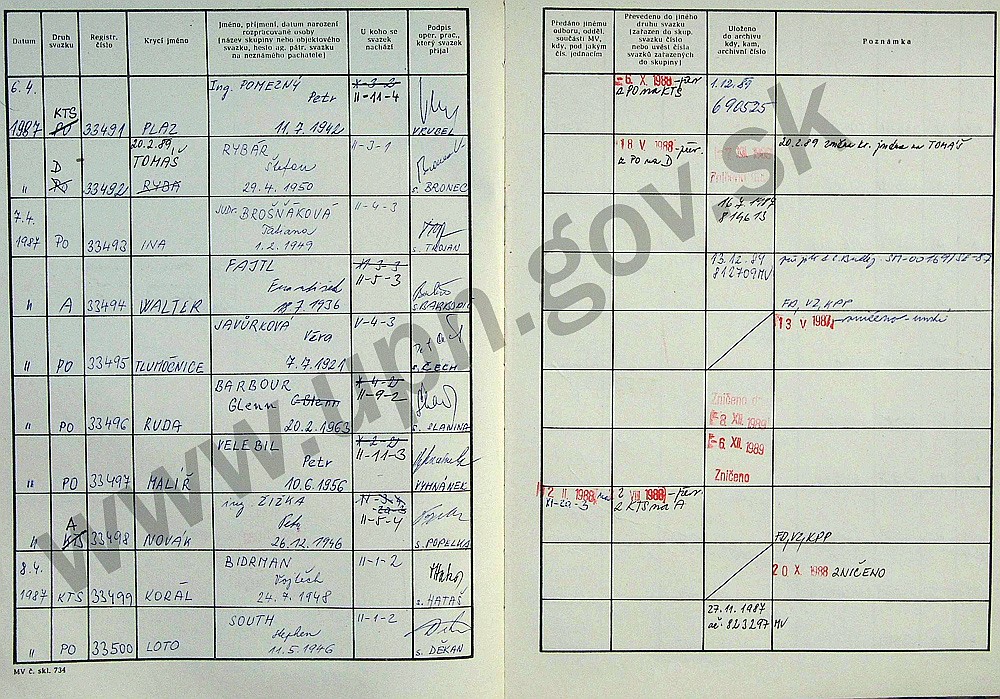 Datum
Druh svazku
Registr. číslo
Krycí jméno
Jméno, příjmení, datum narození
rozpracované osoby
(název skupiny nebo objektového
svazku, heslo ag. pátr. svazku
na neznámého pachatele)
U koho se
svazek
nachází
Podpis
oper. prac.,
který svazek
přijal
Předáno jinému
odboru, odděl.
součásti MV,
kdy, pod jakým
čís. jednacím
Převedeno do jiného
druhu svazku
(zařazen do skup.
svazku číslo
nebo uvést čísla
svazků zařazených
do skupiny)
Uloženo
do archivu
kdy, kam,
archivní číslo
Poznámka
6.4.
1987 KTS PO 33491 PLAZ
Ing. POMEZNÝ
Petr
11.7.1942
X-3-2
II-11-4
VRUBEL
-6. X. 1988 -přev.
z PO na KTS
1.12.89
696525
20.2.89
D PO 33492 TOMÁŠ RYBA
RYBÁŘ
Štefan
29.4.1950
II-3-1
s. BRONEC
18 V 1988 -přev.
z PO na D
20.2.89 změna kr. jména na TOMÁŠ
7.4.
1987 PO 33493 INA
JUDr. BROŠŇÁKOVÁ
Tatiana
1.2.1949
II-4-3
s. TROJAN
16.7.1987
814613
" A 33494 WALTER
FAJTL
František
7.1936
II-5-3
13.12.84
812709 MV
" PO 33495 TLUMOČNICE
JAVŮRKOVÁ
Věra
7.7.1921
V-4-3
s. ČECH
FO, VZ, KPP
13 V 1987 -zničeno
" PO 33496 RUDA
BARBOUR
Glenn
20.2.1963
X-4-2
II-9-2
s. SLANINA
Zničeno
-8. XII. 1989
" PO 33497 MALÍŘ
VELEBIL
Petr
10.6.1956
X-2-2
II-11-3
VYHNÁNEK
-6. XII. 1989
Zničeno
" A KTS 33498 NOVÁK
ing. ŽIŽKA
Petr
26.12.1946
II-5-4
s. POPELKA
2 II. 1988
XI-za-5
2 VIII 1988 -přev.
z KTS na A
8.4.
1987 KTS 33499 KORÁL
BIDRMAN
Vojtěch
24.7.1948
II-1-2
s. HATAŠ
FO, VZ, KPP
20 X. 1988 ZNIČENO
" PO 33500 LOTO
SOUTH
Stephen
11.5.1946
II-1-2
s. DĚKAN
27.11.1987
ač. 823297 MV
MV č. skl. 734
www.upn.gov.sk